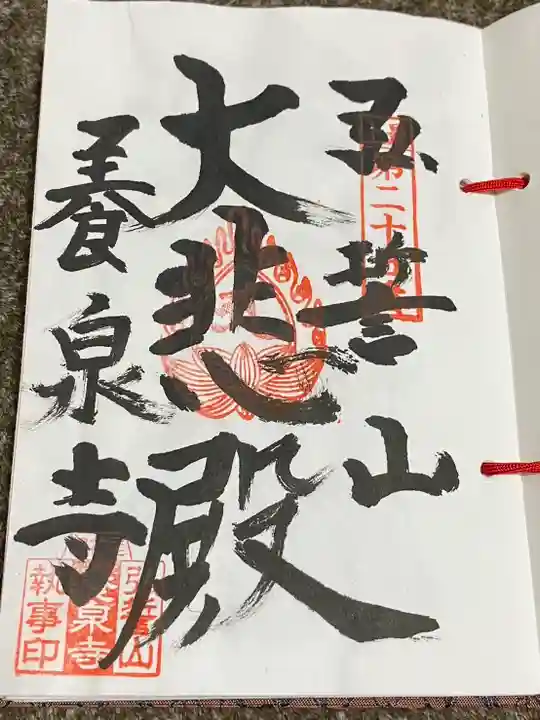 第二十
弘誓山
大悲殿
養泉寺
弘誓山
養泉寺
執事印